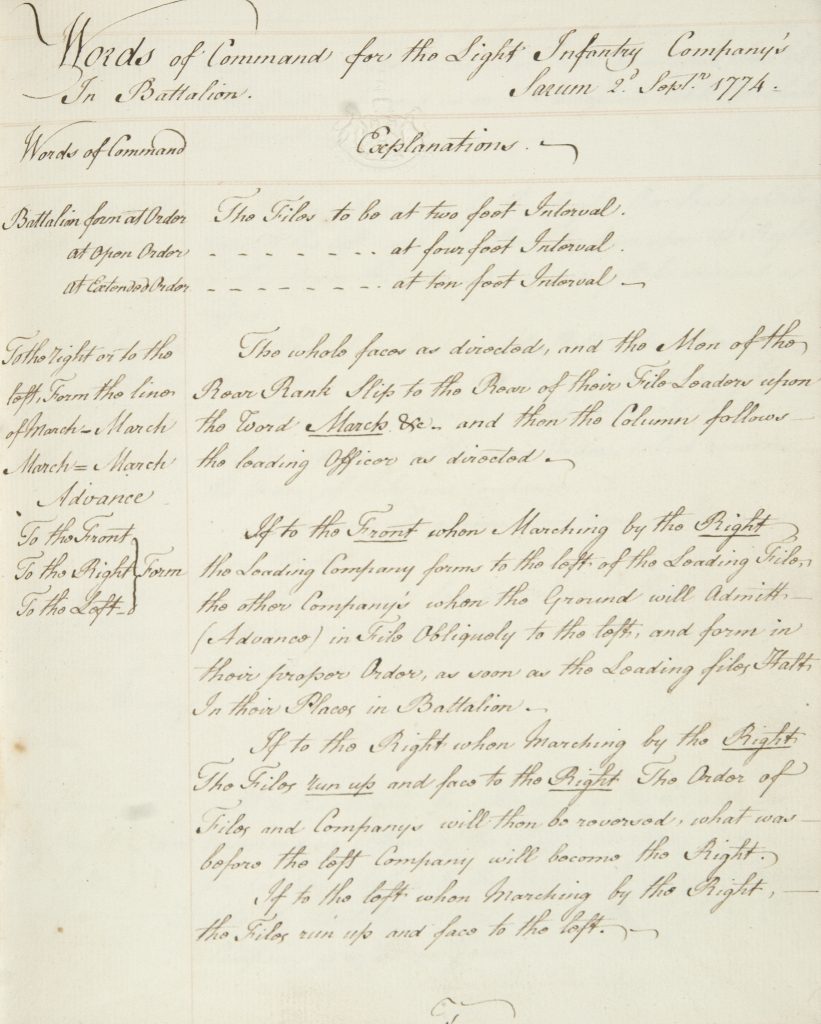 Words of Command for the Light Infantry Company's
In Battalion. Sarum 2d. Septr. 1774.
Words of Command Explanations.
Battalion form at Order The Files to be at two foot Interval.
at Open Order - - - - - - - at four foot Interval.
at Extended Order - - - - - - - at ten foot Interval
To the right or to the
left, Form the line
of March = March
March = March
Advance
The whole faces as directed, and the Men of the
Rear Rank Slip to the Rear of their File Leaders upon
the Word March &c. and then the Column follows
the leading Officer as directed.
To the Front
To the Right Form
To the Left
If to the Front when Marching by the Right
the Leading Company forms to the left of the Leading File,
the other Company's when the Ground will Admitt
(Advance) in File Obliquely to the left, and form in
their proper Order, as soon as the Leading files Halt
In their Places in Battalion
If to the Right when Marching by the Right
The Files run up and face to the Right The Order of
Files and Companys will then be reversed, what was
before the left Company will become the Right.
If to the left when Marching by the Right,
the Files run up and face to the left.